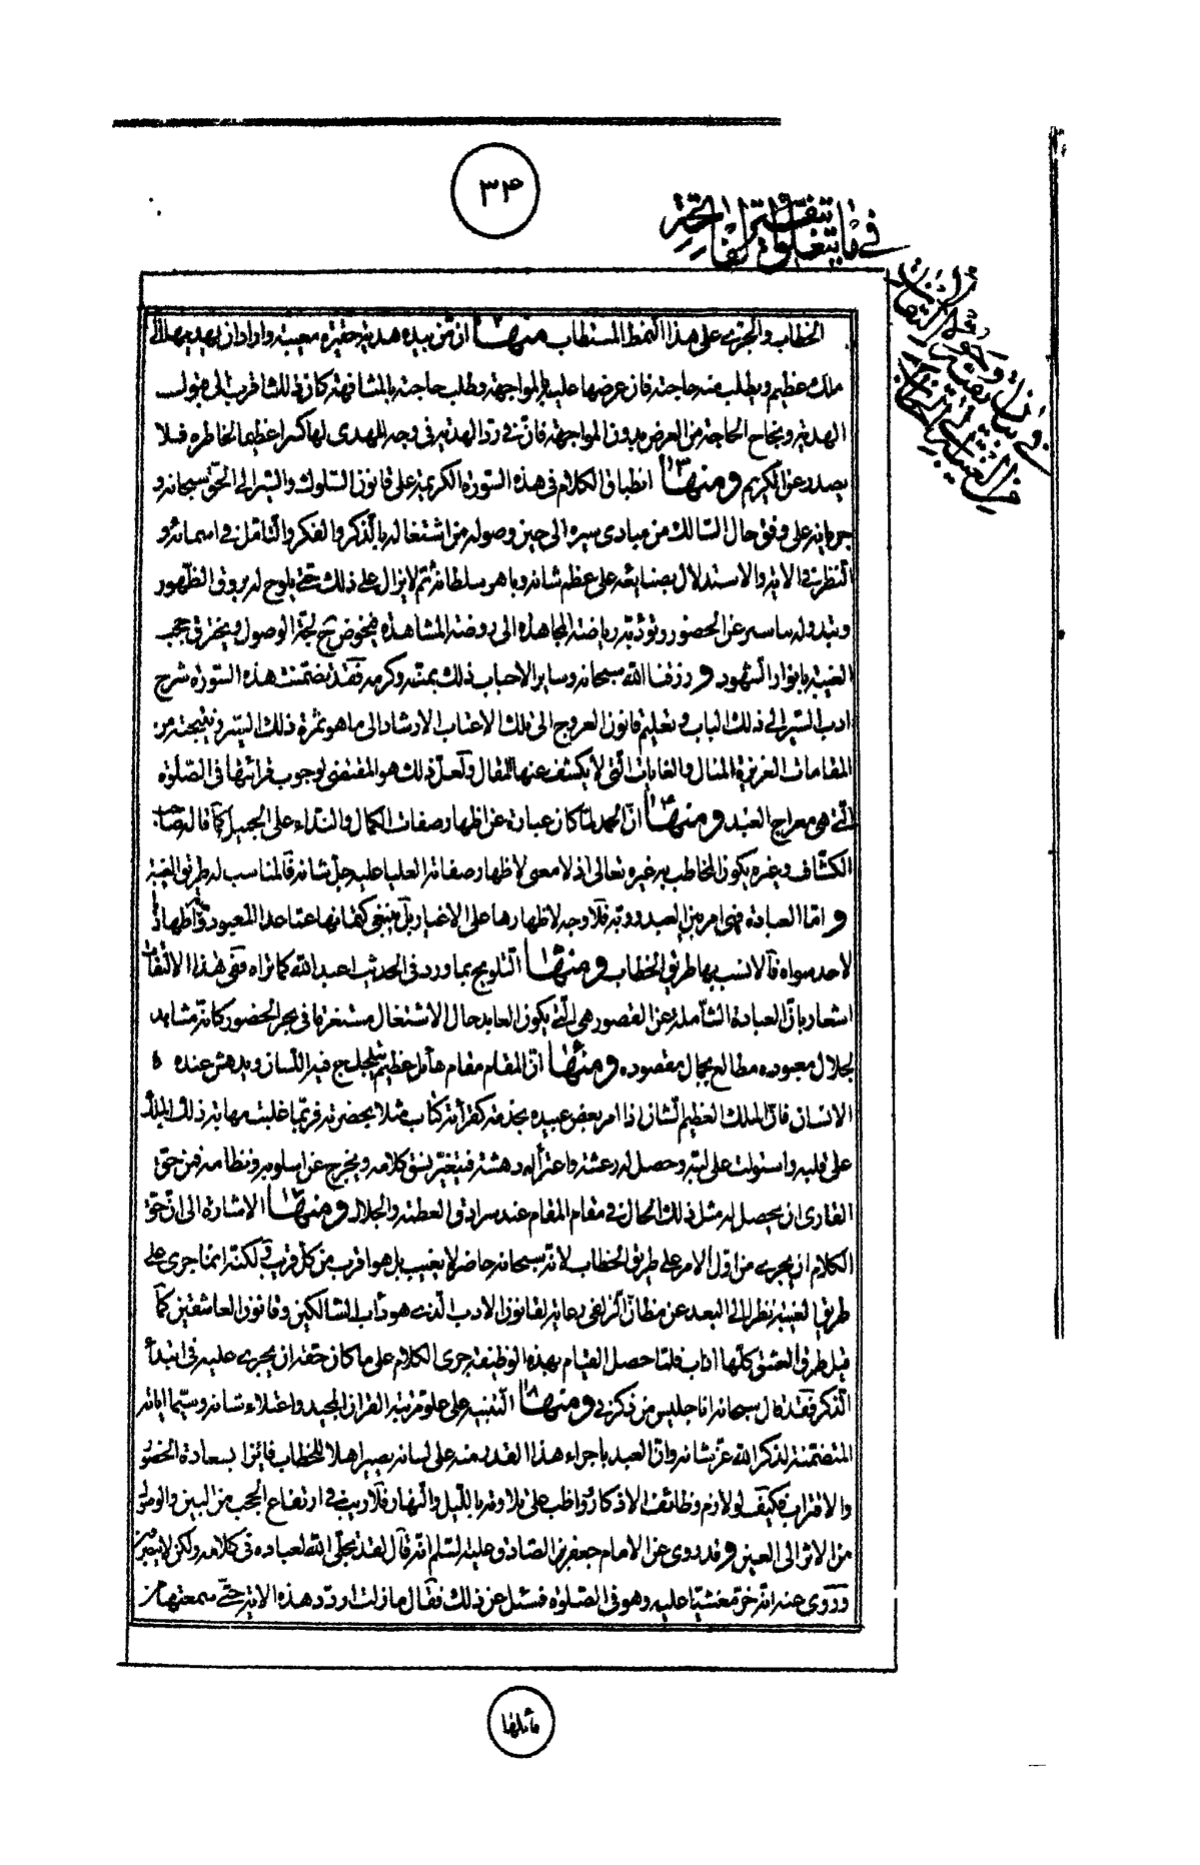 ٣٤
في ما يتعلق بتفسير الفاتحة
في بيان نكات وجوه التفنن من الغيبة الى الخطاب
الخطاب والجري على هذا النمط المستطاب ومنها ان من بيده هدية حقيرة معيبة واراد ان يهديها الى
ملك عظيم ويطلب منه حاجته فان عرضها عليه بالمواجهة وطلب حاجته بالمشافهة كان ذلك اقرب الى قبول
الهدية ونجاح الحاجة من العرض بدون المواجهة فان في رد الهدية في وجه المهدى لها كسرا عظيما لخاطره فلا
يصدر عن الكريم ومنها انطباق الكلام في هذه السورة الكريمة على قانون السلوك والسير الى الحق سبحانه و
جريانه على وفق حال السالك من مبادى سيره الى حين وصوله من اشتغاله بالذكر والفكر والتأمل في اسمائه و
النظر في آلائه والاستدلال بصنايعه على عظم شانه وباهر سلطانه ثم لا يزال على ذلك حتى يلوح له بروق الظهور
ويبدو له تباشير الحضور وتؤديه رياضة المجاهده الى روضة المشاهده فيخوض لجة الوصول ويخرق حجب
الغيبة بانوار الشهود ورزقنا الله سبحانه وساير الاحباب ذلك بمنه وكرمه فقد تضمنت هذه السورة شرح
ادب السير الى ذلك الباب وتعليم قانون العروج الى تلك الاعتاب الارشاد الى ما هو ثمرة ذلك السير ونتيجته من
المقامات العزيزة المنال والغايات التي لا يكشف عنها المقال ولعل ذلك هو المقتضى لوجوب قرائتها في الصلوة
التي هى معراج العبد ومنها ان الحمد لما كان عبارة عن اظهار صفات الكمال والنداء على الجميل كما قاله صاحب
الكشاف وغيره يكون المخاطب به غيره تعالى اذ لا معنى لاظهار صفاته العليا عليه جل شانه فالمناسب له طريق الغيبة
واما العبادة فهى امر بين العبد وربه فلا وجه لاظهارها على الاغيار بل ينبغى كتمانها عما عدا المعبود واظهارها
لاحد سواه فالانسب بها طريق الخطاب ومنها التلويح بما ورد في الحديث اعبد الله كانك تراه ففى هذا الالتفات
اشعار بان العبادة السالمة عن القصور هى التي يكون العابد حال الاشتغال مستغرقا في بحر الحضور كانه مشاهد
لجلال معبوده مطالع لجمال مقصوده ومنها ان المقام مقام هائل عظيم يتلجلج فيه اللسان ويدهش عنده
الانسان فان الملك العظيم الشان اذا امر بعض عبيده بخدمة كقرأة كتاب مثلا بحضرته فربما غلبت مهابة ذلك الملك
على قلبه واستولت على لبه وحصل له رعشة واعتراه دهشة فيتغير نسق كلامه ويخرج عن اسلوبه ونظامه فمن حق
القارى ان يحصل له مثل ذلك الحال في مقام المقام عند سرادق العظمة والجلال ومنها الاشارة الى ان حق
الكلام ان يجرى من اول الامر على طريق الخطاب لانه سبحانه حاضر لا يغيب بل هو اقرب من كل قريب ولكنه انما جرى على
طريق الغيبة نظرا الى البعد عن مظان الزلفى رعاية لقانون الادب الذى هو داب السالكين وقانون العاشقين كما
قيل طرق العشق كلها اداب فلما حصل القيام بهذه الوظيفة جرى الكلام على ما كان حقه ان يجرى عليه في ابتداء
الذكر فقد قال سبحانه انا جليس من ذكرني ومنها التنبيه على علو مرتبة القران المجيد واعتلاء شانه وسيما اياته
المتضمنة لذكر الله عز شانه وان العبد باجراء هذا القدر منه على لسانه يصير اهلا للخطاب فائزا بسعادة الحضور
والاقتراب فكيف لو لازم وظائف الاذكار وواظب على تلاوته بالليل والنهار فلا ريب في ارتفاع الحجب من البين والوصول
من الاثر الى العين وقد روى عن الامام جعفر الصادق عليه السلم انه قال لقد تجلى الله لعباده في كلامه ولكن لا يبصرون
وروى عنه انه خر مغشيا عليه وهو في الصلوة فسئل عن ذلك فقال ما زلت اردد هذه الاية حتى سمعتها من
قائلها